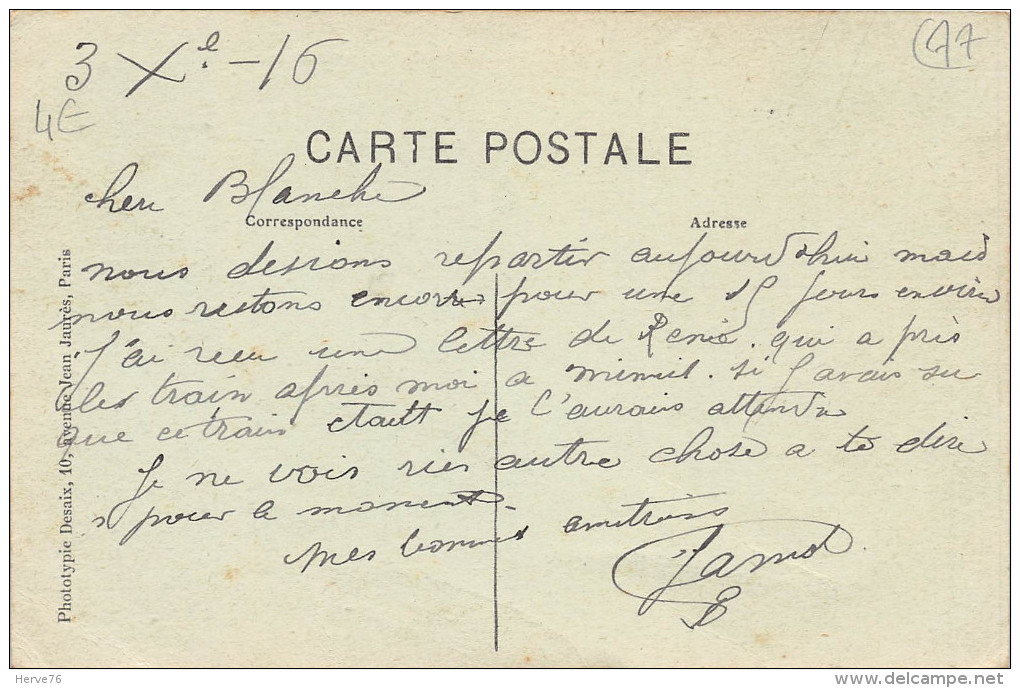 3 Xe - 16
47
4E
CARTE POSTALE
chere Blanche
Correspondance
Adresse
nous desions repartir aujourd'hui mais
nous restons encore pour une 15 jours environ
J'ai recu une lettre de René. qui a pris
les train après moi a minuit. si j'avais su
que ce train etait je l'aurais attendu
Je ne vois rien autre chose a te dire
pour le moment.
mes bonnes amitiees
Phototypie Desaix, 10, avenue Jean Jaurès, Paris
Herve76
delcampe.net